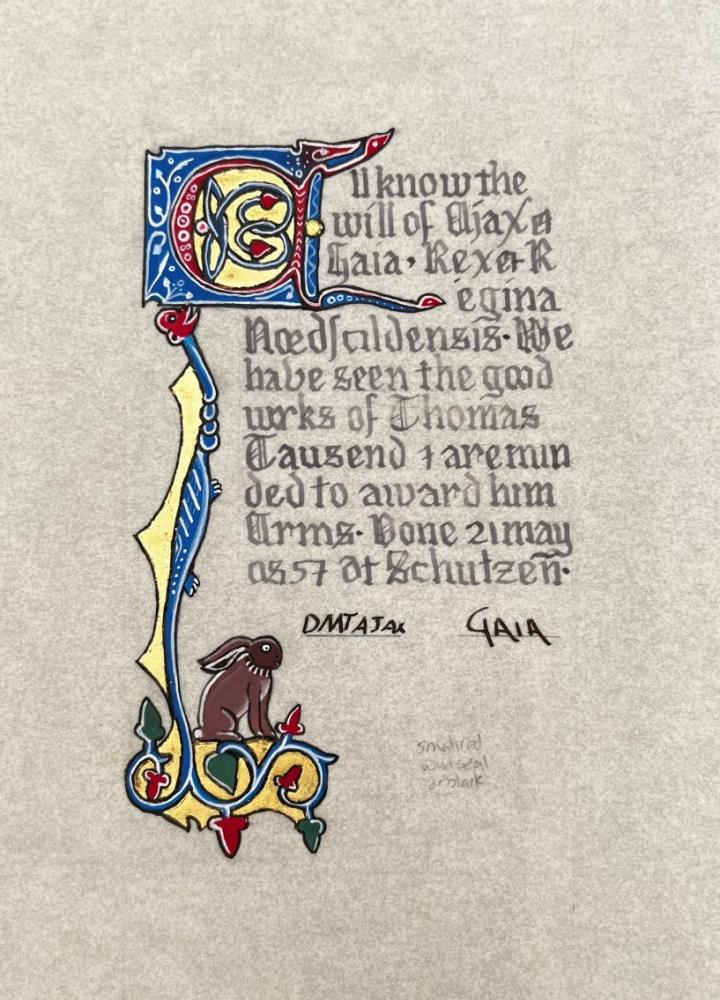 All know the
will of Ajax &
Gaia · Rex et R
egina
Nordſcildensis · We
have seen the good
works of Thomas
Tausend & are min
ded to award him
Arms · Done 21 may
as 57 at Schutzen̄ ·
DMTAJAX GAIA
small red
wax seal
or black